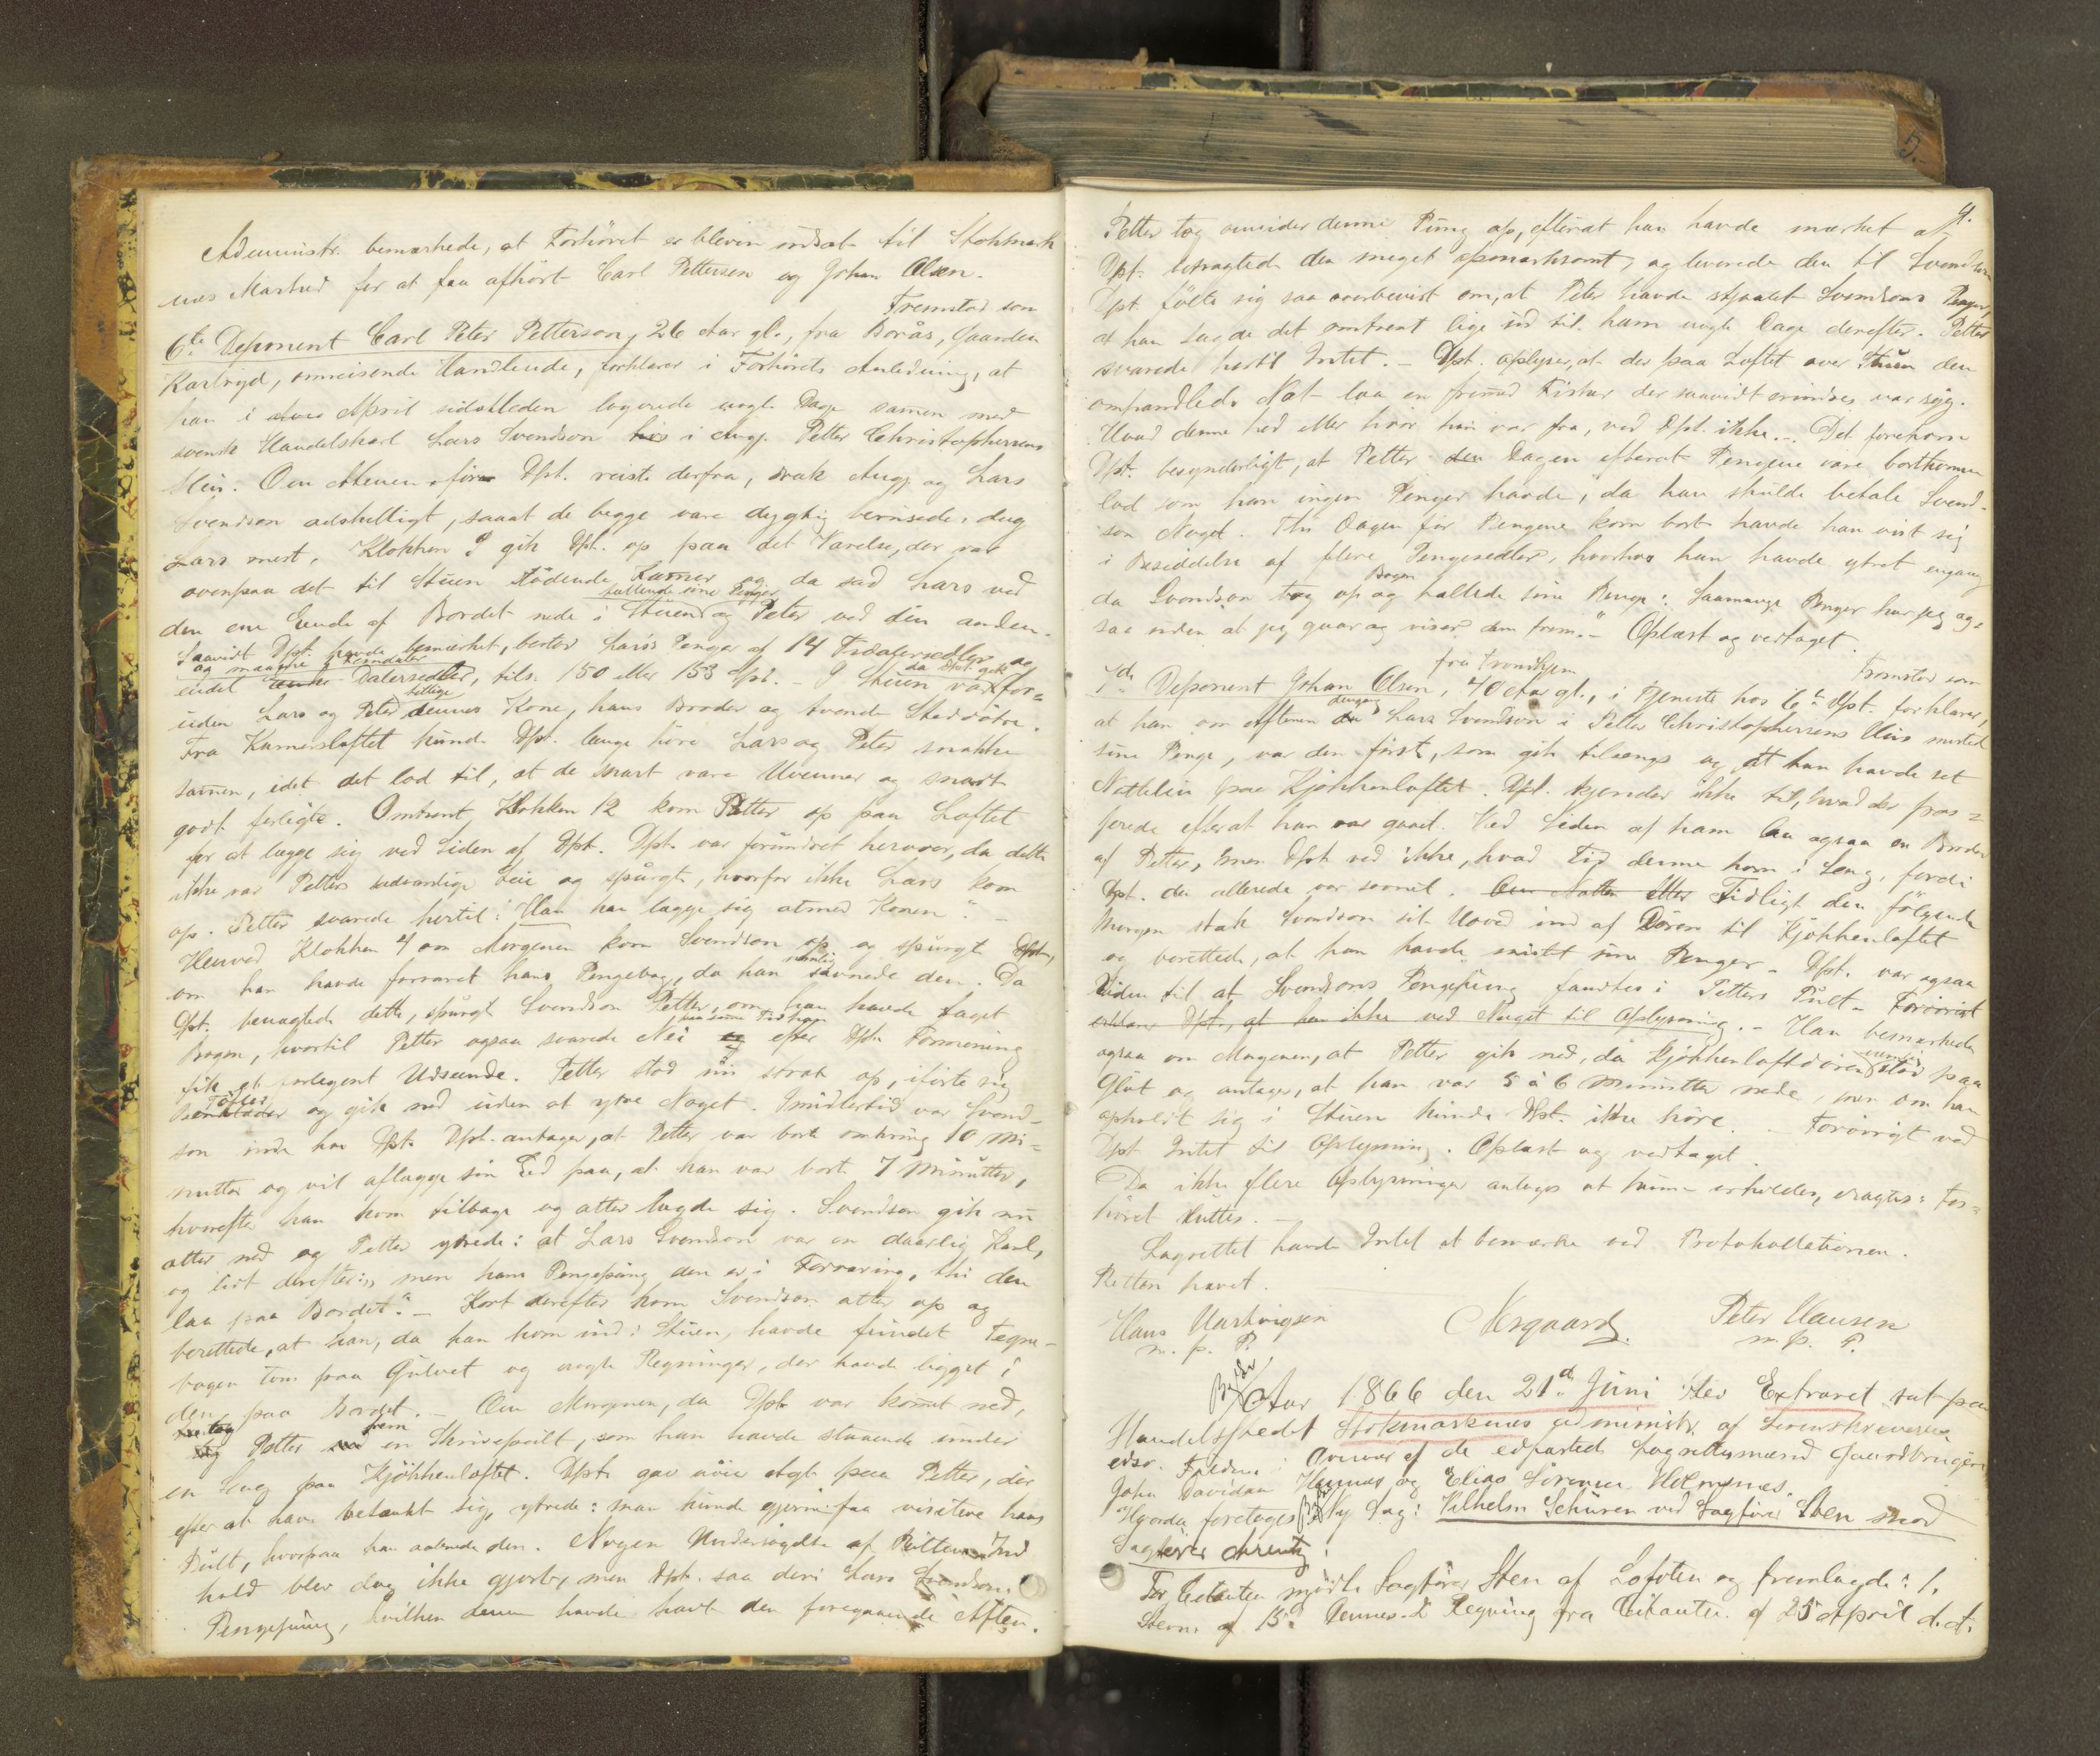 Administr. bemærkede, at Forhöret er bleven udsat til Stokmark
næs Marked for at faa afhört Carl Pettersen og Johan Olsen.
Fremstod som
6te Deponent Carl Peter Petterson, 26 Aar gl., fra Borås, Gaarden
omreisende Handlende, forklarer i Forhörets Anledning, at
han i April sidstleden logerede nogle Dage sammen med
svensk Handelskarl Lars Svendson hos i Angj. Petter Christophersens
Huus. Om Aftenen för Dpt. reiste derfra, drak Angj. og Lars
Svendson adskilligt, saaat de begge vare dygtig berusede, dog
Lars mest. Klokken 9 gik Dpt. op paa det Værelse, der var
ovenpaa det til Stuen stödende Kamer og da sad Lars ved
tællende sine Penger
den ene Ende af Bordet nede i Stuen og Peter ved den anden.
Saavidt Dpt. havde bemærket, bestod Lars's Penger af 14 Tidalersedler og
og maaske 2 Femdaler da Dpt. gik
endel Dalersedler, tils. 150 eller 153 Spd. – I Stuen var for=
tillige
uden Lars og Peter dennes Kone, hans Broder og tvende Steddötre.
Fra Kamersloftet kunde Dpt. længe höre Lars og Peter snakke
samen, idet det lod til, at de snart vare Uvenner og snart
godt forligte. Omtrent Klokken 12 kom Petter op paa Loftet
for at lægge sig ved Siden af Dpt. Dpt. var forundret herover, da dette
ikke var Petters sædvanlige Leie og spurgte, hvorfor ikke Lars kom
op. Petter svarede hertil: "Han kan lægge sig atmed Konen". –
Henved Klokken 4 om Morgenen kom Svendson op og spurgte Dpt.,
nemlig
om han havde forvaret hans Pengebog, da han savnede den. Da
Dpt. benægtede dette, spurgte Svendson Petter, om han havde taget
Bogen, hvortil Petter ogsaa svarede Nei og efter Dpts Formening
fik et forlegent Udseende. Petter stod nu strax op, iförte sig
Töfler
og gik ned uden at ytre Noget. Imidlertid var Svend-
son inde hos Dpt. Dpt. antager, at Petter var borte omkring 10 Mi=
nutter og vil aflægge sin Ed paa, at han var borte 7 Minutter,
hvorefter han kom tilbage og atter lagde sig. Svendson gik nu
atter ned og Petter ytrede: at Lars Svendson var en daarlig Karl,
og lidt derefter: "men hans Pengepung den er i Forvaring, thi den
laa paa Bordet". – Kort derefter kom Svendson atter op og
berettede, at han, da han kom ind i Stuen, havde fundet Tegne-
bogen tom paa Gulvet og nogle Regninger, der havde ligget i
den, paa Bordet. – Om Morgenen, da Dpt. var kommet ned,
tog frem
Petter en Skrivepult, som han havde staaende under
en Seng paa Kjökkenloftet. Dpt. gav nöie Agt paa Petter, der
efter at have betænkt sig, ytrede: man kunde gjerne faa visitere hans
Pult, hvorpaa han aabnede den. Nogen Undersögelse af Pultens Ind
hold blev dog ikke gjort, men Dpt. saa deri Lars Svendsons
Pengepung, hvilken denne havde havt den foregaaende Aften.
4.
Petter tog omsider denne Pung op, efterat han havde mærket at
Dpt. betragtede den meget opmærksomt, og leverede den til Svendson
Dpt. fölte sig saa overbevist om, at Peter havde stjaalet Svendsons Penger,
at han sagde det omtrent lige ind til ham nogle Dage derefter. Petter
svarede hertil Intet. – Dpt. oplyser, at der paa Loftet over Stuen den
omhandlede Nat laa en fremmed Fisker der saavidt erindres var syg.
Hvad denne hed eller hvor han var fra, ved Dpt. ikke. – Det forekom
Dpt. besynderligt, at Petter Dagen efterat Pengene vare bortkomne
lod som han ingen Penger havde, da han skulde betale Svend-
son Noget. Thi Dagen för Pengene kom bort havde han vist sig
i Besiddelse af flere Pengesedler, hvorhos han havde ytret engang
Bogen
da Svendson tog op og tællede sine Penge: "Saamange Penger har jeg og=
saa uden at jeg gaar og viser dem frem." – Oplæst og vedtaget.
fra Trondhjem Fremstod som
7de Deponent Johan Olsen, 40 Aar gl., i Tjeneste hos 6te Dpt. forklarer,
dengang
at han om Aftenen Lars Svendson i Petter Christophersens Huus mistet
sine Penge, var den först, som gik tilsengs og at han havde sit
Natteleie paa Kjökkenloftet. Dpt. kjender ikke til, hvad der pas=
serede efterat han var gaaet. Ved Siden af ham laa ogsaa en Broder
af Petter, men Dpt. ved ikke, hvad Tid denne kom i Seng, fordi
Dpt. da allerede var sovnet. Om Natten eller Tidligt den fölgende
Morgen stak Svendson sit Hoved ind af Dören til Kjökkenloftet
og berettede, at han havde mistet sine Penger. – Dpt. var ogsaa
Viden til at Svendsons Pengepung fandtes i Petters Pult. – Forövrigt
erklærer Dpt., at han ikke ved Noget til Oplysning. – Han bemærkede
ogsaa om Morgenen, at Petter gik ned, da Kjökkenloftdören nemlig stod paa
Glöt og antager, at han var 5 à 6 Minutter nede, men om han
opholdt sig i Stuen kunde Dpt. ikke höre. – Forövrigt ved
Dpt. Intet til Oplysning. Oplæst og vedtaget.
Da ikke flere Oplysninger antages at kunne erholdes, eragtes: For=
höret sluttes. –
Lagrettet havde Intet at bemærke ved Protokollationen.
Retten hævet.
Hans Hartvigsen Norgaard Peter Hansen
m. p. P. m. p. P.
Aar 1866 den 21de Juni blev Extraret sat paa
Handelsstedet Stokmarknæs administr. af Sorenskriveren
edsv. Fuldm. i Overvær af de edfæstede Lagrettesmænd Gaardbruger
John Davidsen Hognæs og Elias Sörensen Holmsnes.
Hvorda foretoges Ny Sag: Vilhelm Schuren ved Sagförer Steen mod
Sagförer Arentz:
For Citanten mödte Sagförer Steen af Lofoten og fremlagde: 1.
Stevn. af 15d dennes. 2 Regning fra Citanten af 25 April d. A.